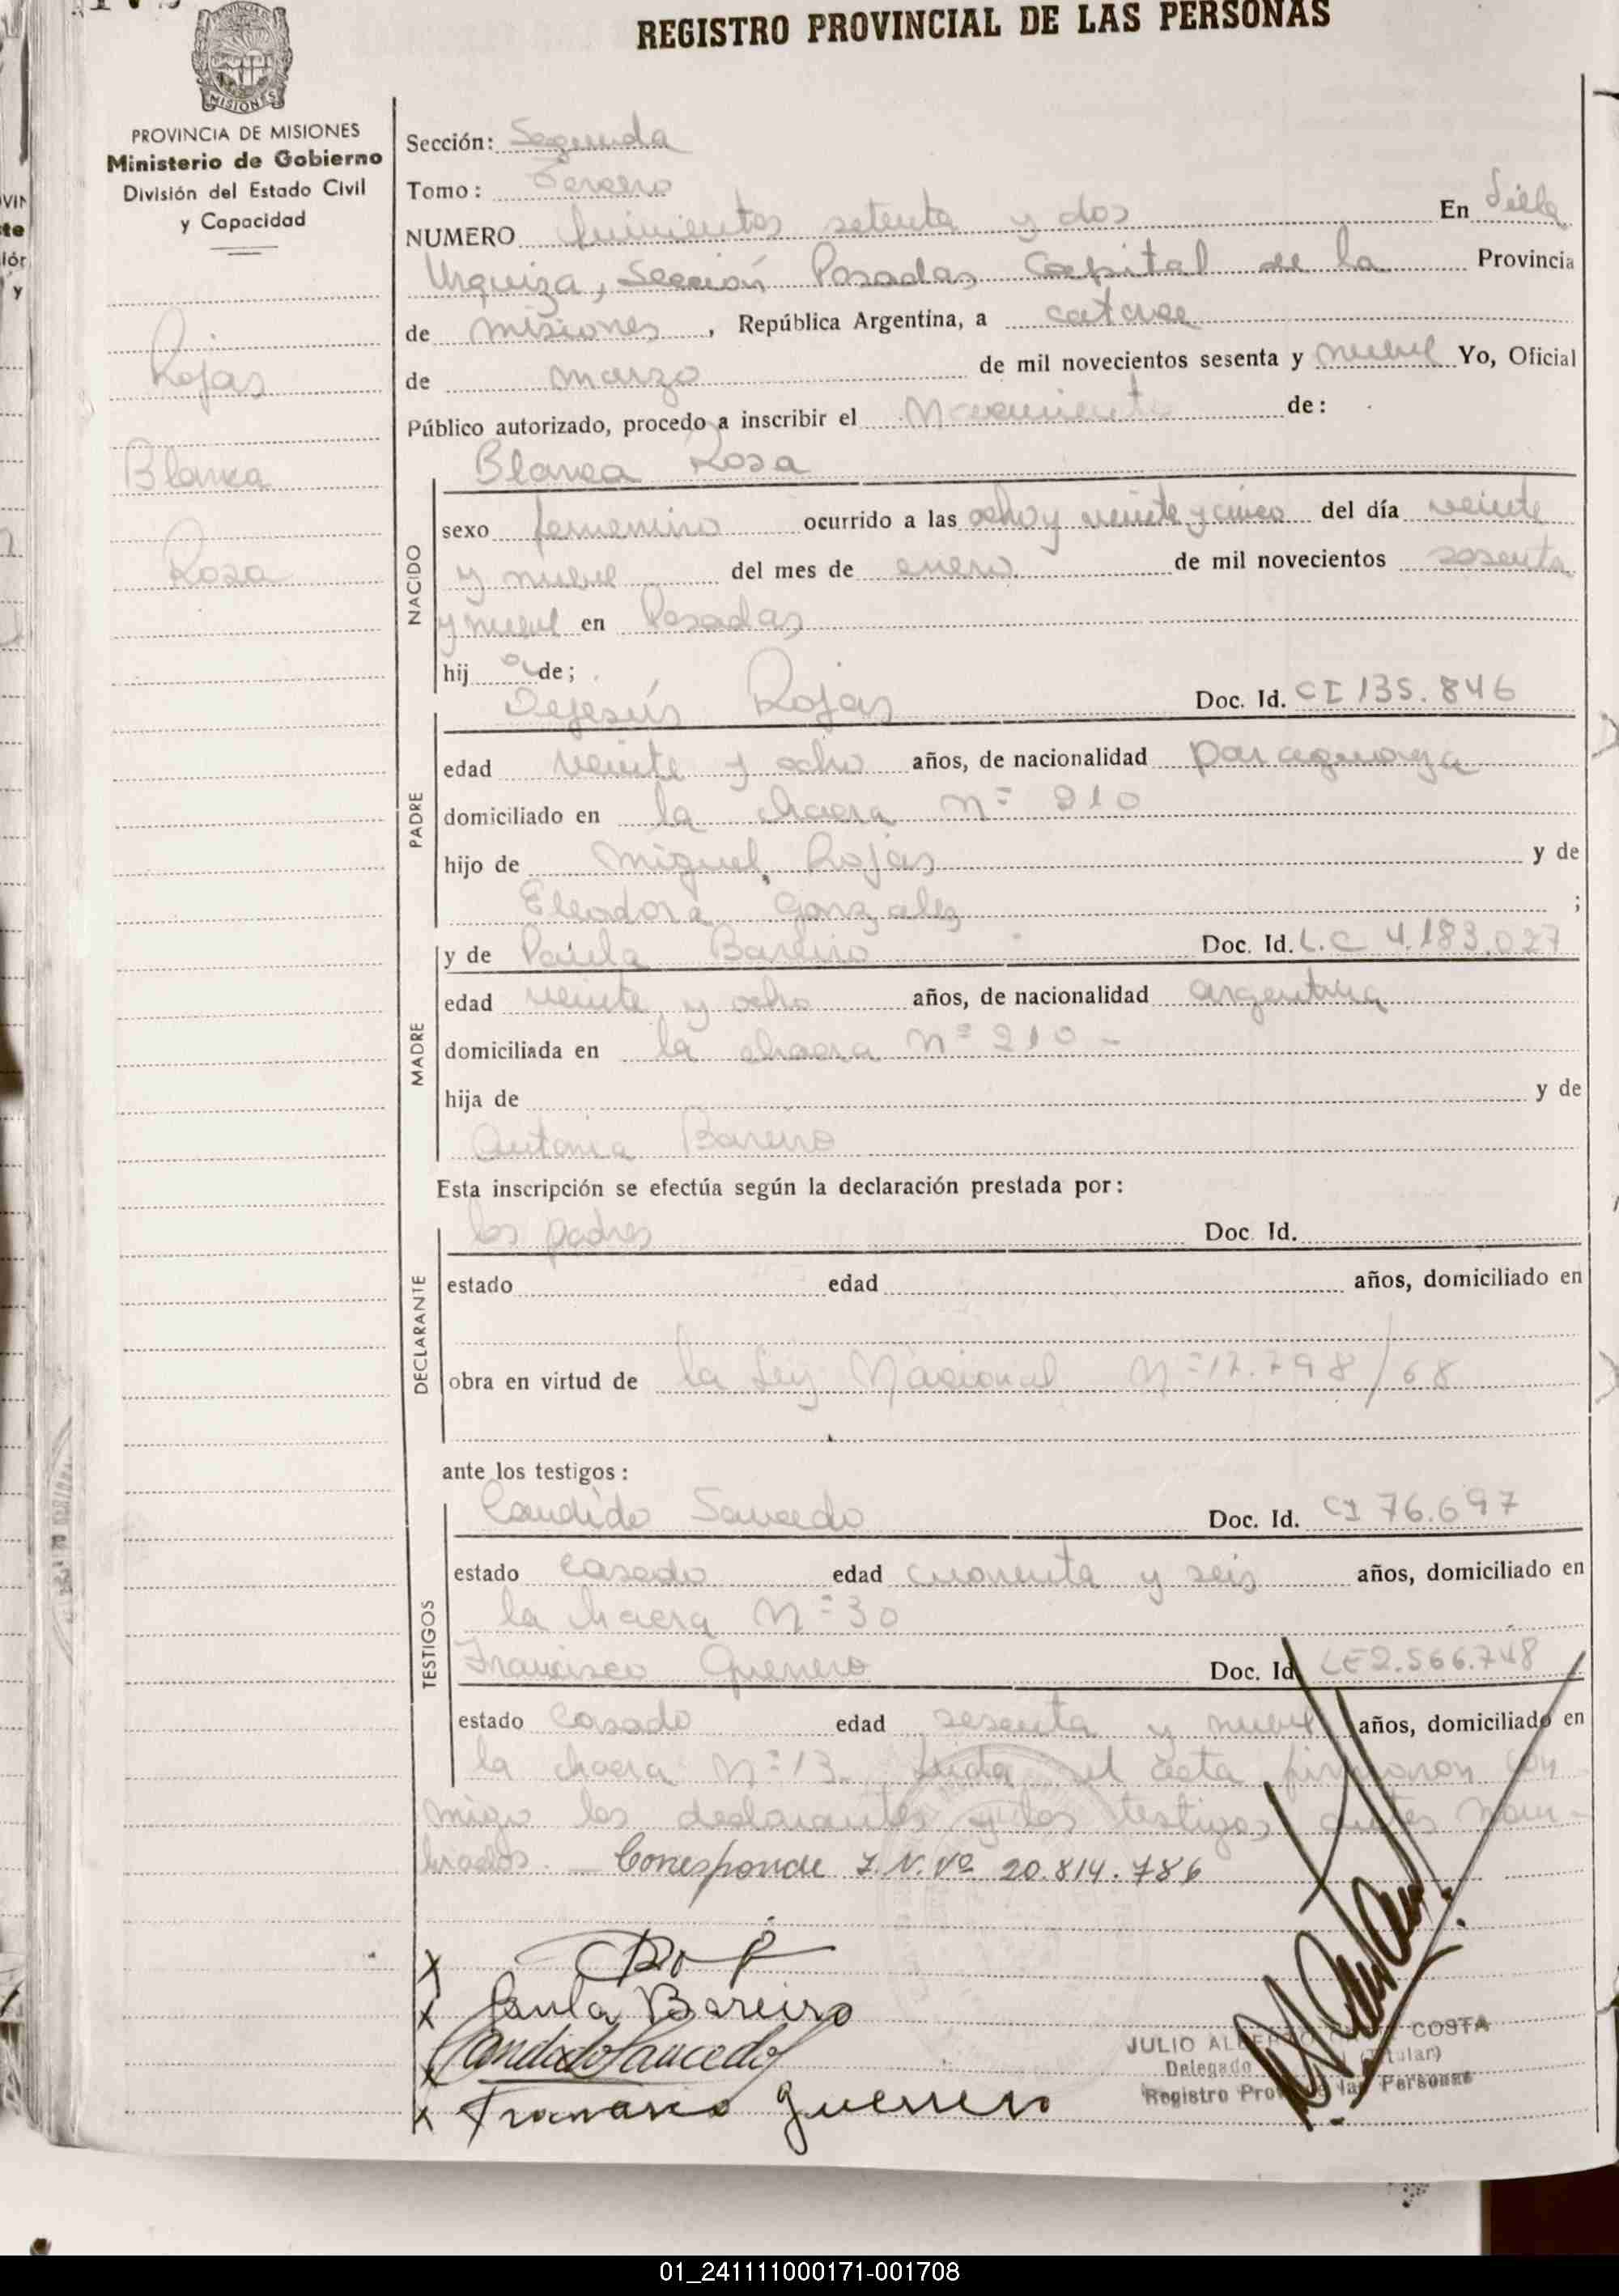 REGISTRO PROVINCIAL DE LAS PERSONAS
MISIONES
PROVINCIA DE MISIONES
Ministerio de Gobierno
División del Estado Civil
y Capacidad
Rojas
Blanca
Rosa
Sección: Segunda
Tomo: Tercero
NUMERO Quinientos setenta y dos En Villa
Urquiza, Sección Posadas Capital de la Provincia
de Misiones, República Argentina, a catorce
de marzo de mil novecientos sesenta y nueve Yo, Oficial
Público autorizado, procedo a inscribir el Nacimiento de:
Blanca Rosa
NACIDO
sexo femenino ocurrido a las ocho y veinte y cinco del día veinte
y nueve del mes de enero de mil novecientos sesenta
y nueve en Posadas
hij a de;
PADRE
Dejesús Rojas Doc. Id. CI 135.846
edad veinte y ocho años, de nacionalidad paraguaya
domiciliado en la chacra Nº 210
hijo de Miguel Rojas y de
Eleodora Gonzalez ;
MADRE
y de Paula Bareiro Doc. Id. L.C 4.183.027
edad veinte y ocho años, de nacionalidad argentina
domiciliada en la chacra Nº 210 -
hija de y de
Antonia Bareiro
Esta inscripción se efectúa según la declaración prestada por:
DECLARANTE
los padres Doc. Id.
estado edad años, domiciliado en
obra en virtud de la Ley Nacional Nº 17.798/68
ante los testigos:
TESTIGOS
Candido Saucedo Doc. Id. CI 76.697
estado casado edad cuarenta y seis años, domiciliado en
la chacra Nº 30
Francisco Guerrero Doc. Id. LE 2.566.748
estado casado edad sesenta y nueve años, domiciliado en
la chacra Nº 13. Leida el acta firmaron con
migo los declarantes y los testigos antes nom-
brados. - Corresponde I.N.Nº 20.814.786
X
X Paula Bareiro
X Candido Saucedo
X Francisco Guerrero
JULIO ALBERTO COSTA
Delegado (Titular)
Registro Prov. de las Personas
01_241111000171-001708